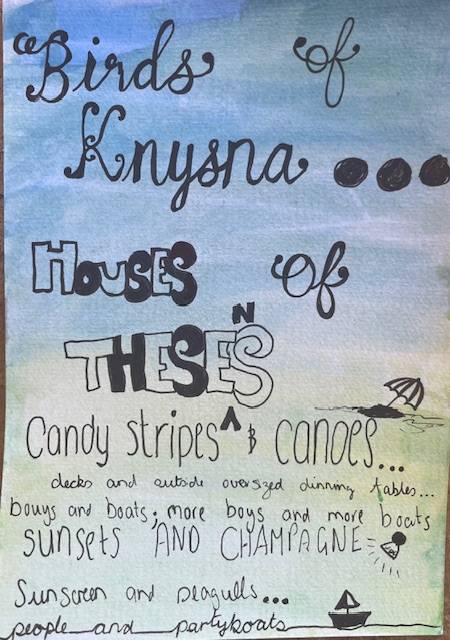 Birds of
Knysna ...
Houses Of
N
THESES
Candy stripes ^ & canoes...
decks and outside oversized dinning tables...
bouys and boats; more boys and more boats
sunsets AND CHAMPAGNE
Sunscreen and seagulls...
people and partyboats